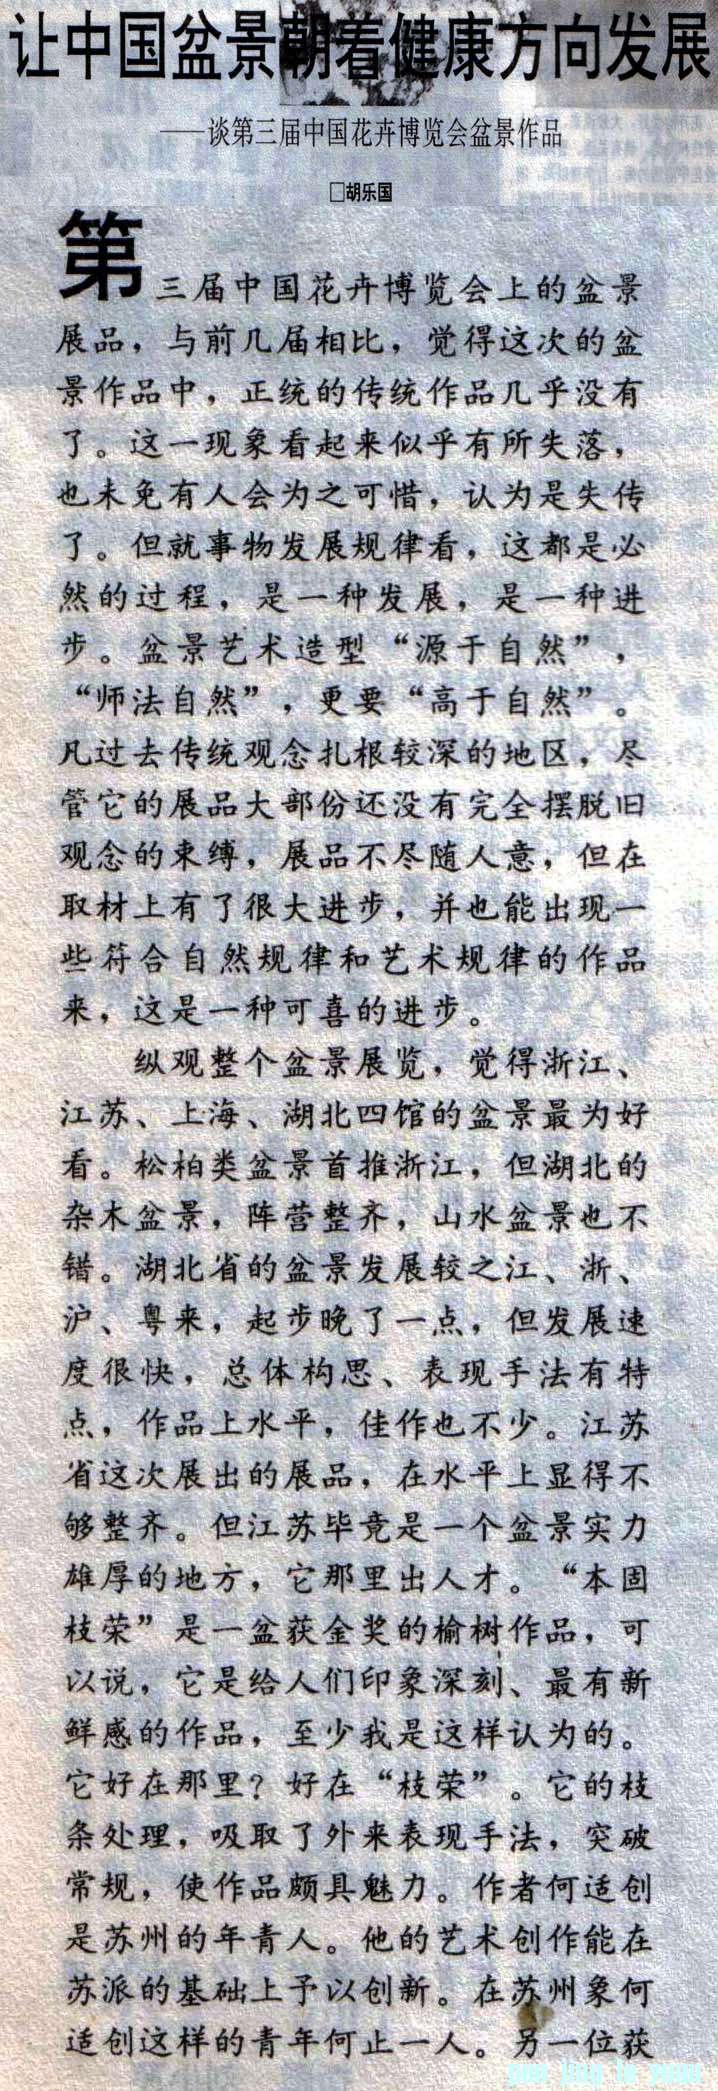 让中国盆景朝着健康方向发展
——谈第三届中国花卉博览会盆景作品
□胡乐国
第三届中国花卉博览会上的盆景
展品，与前几届相比，觉得这次的盆
景作品中，正统的传统作品几乎没有
了。这一现象看起来似乎有所失落，
也未免有人会为之可惜，认为是失传
了。但就事物发展规律看，这都是必
然的过程，是一种发展，是一种进
步。盆景艺术造型“源于自然”，
“师法自然”，更要“高于自然”。
凡过去传统观念扎根较深的地区，尽
管它的展品大部份还没有完全摆脱旧
观念的束缚，展品不尽随人意，但在
取材上有了很大进步，并也能出现一
些符合自然规律和艺术规律的作品
来，这是一种可喜的进步。
纵观整个盆景展览，觉得浙江、
江苏、上海、湖北四馆的盆景最为好
看。松柏类盆景首推浙江，但湖北的
杂木盆景，阵营整齐，山水盆景也不
错。湖北省的盆景发展较之江、浙、
沪、粤来，起步晚了一点，但发展速
度很快，总体构思、表现手法有特
点，作品上水平，佳作也不少。江苏
省这次展出的展品，在水平上显得不
够整齐。但江苏毕竟是一个盆景实力
雄厚的地方，它那里出人才。“本固
枝荣”是一盆获金奖的榆树作品，可
以说，它是给人们印象深刻、最有新
鲜感的作品，至少我是这样认为的。
它好在那里？好在“枝荣”。它的枝
条处理，吸取了外来表现手法，突破
常规，使作品颇具魅力。作者何适创
是苏州的年青人。他的艺术创作能在
苏派的基础上予以创新。在苏州象何
适创这样的青年何止一人。另一位获